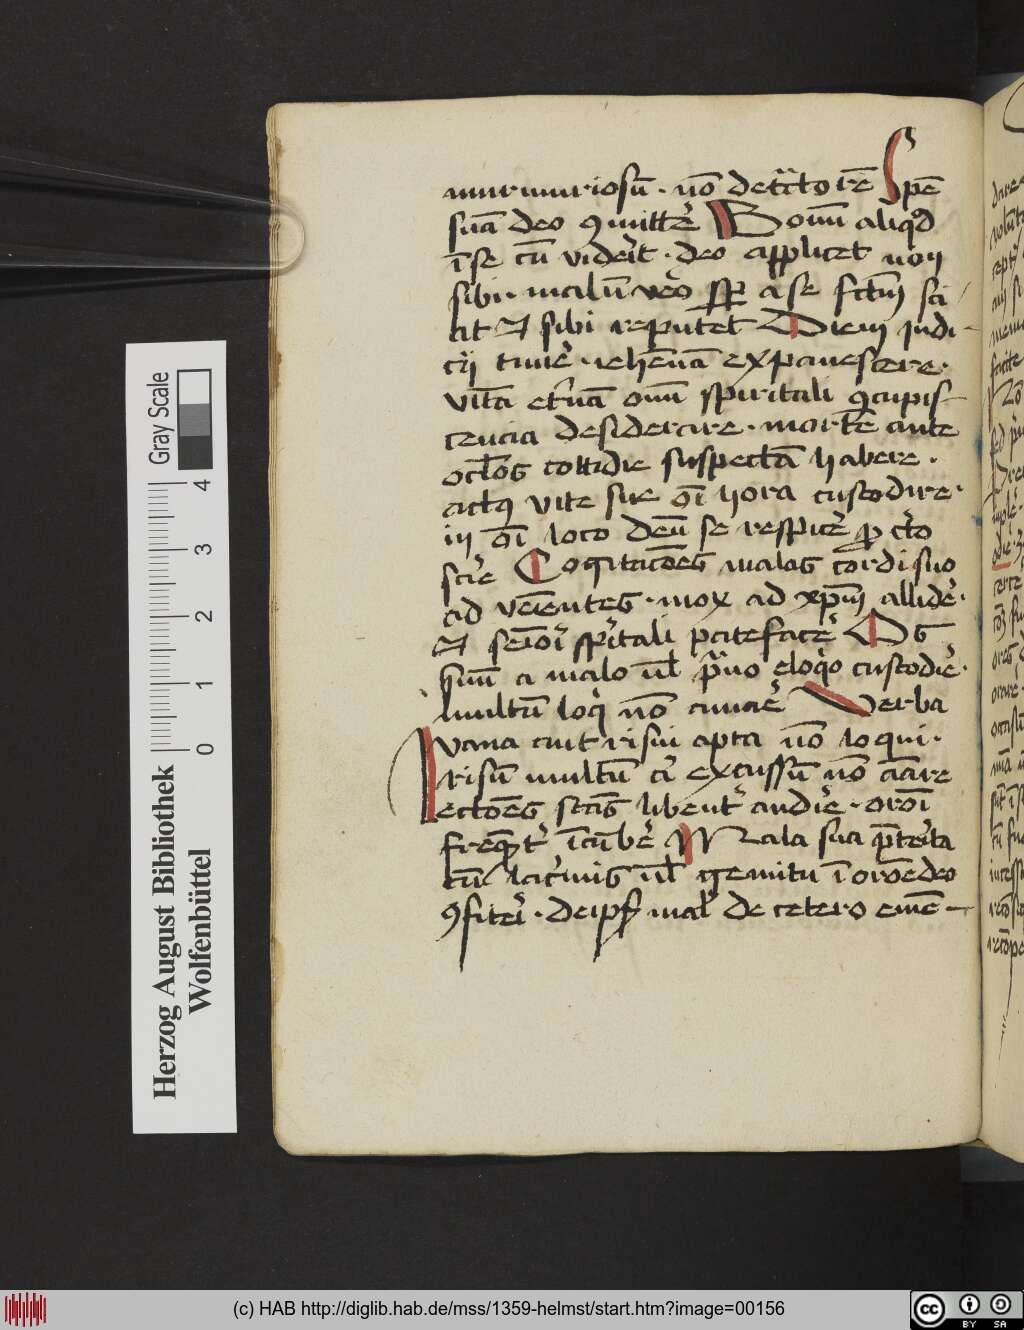 murmuriosū · nō det᷑ctorē Spē
suā deo ꝯmittẽ Bonū aliqͩ
ī se cū viderit · deo applicet non
sibi · malū vero semꝑ a se fctm̄ sci
at ⁊ sibi reputet Diem judi-
cij timẽ · iehēnā expauescere ·
vitā etnā om̄i spiritali ꝯcupis-
cencia desiderare · mortē ante
oclos cottidie suspectā habere ·
actꝰ vite sue oī hora custodire ·
in oī loco deū se respicẽ ꝓ cto
scire Cogitacōes malas cordi suo
ad venientes · mox ad xp̄m allidẽ ·
⁊ seniori spiritali patefacẽ Os
suum a malo ul̄ prauo eloqͦ custodiẽ ·
multū loqͥ nō amaẽ Verba
vana aut risui apta nō loqui ·
risū multū aut excussū nō amare
Lectōes sctās libent᷑ audiẽ · orōi
freqͫtᷣ incūbẽ Mala sua p̄terita
cū lacrimis ul̄ gemitu ī orōe deo
ꝯfiteri · de ipsis mal᷑ de cetero emē-
Gray Scale
0 1 2 3 4
Herzog August Bibliothek
Wolfenbüttel
(c) HAB http://diglib.hab.de/mss/1359-helmst/start.htm?image=00156
cc BY SA